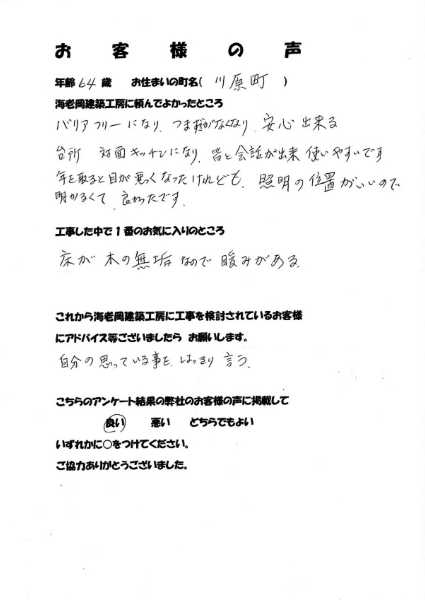 お客様の声
年齢 64 歳 お住まいの町名( 川原町 )
海老岡建築工房に頼んでよかったところ
バリアフリーになり、つまずがなくなり、安心出来る
台所 対面キッチンになり、皆と会話が出来 使いやすいです
年を取ると目が悪くなったけれども、照明の位置がいいので
明かるくて、良かったです。
工事した中で1番のお気に入りのところ
床が木の無垢なので暖みがある。
これから海老岡建築工房に工事を検討されているお客様
にアドバイス等ございましたら お願いします。
自分の思っている事を、はっきり 言う。
こちらのアンケート結果の弊社のお客様の声に掲載して
良い 悪い どちらでもよい
いずれかに○をつけてください。
ご協力ありがとうございました。